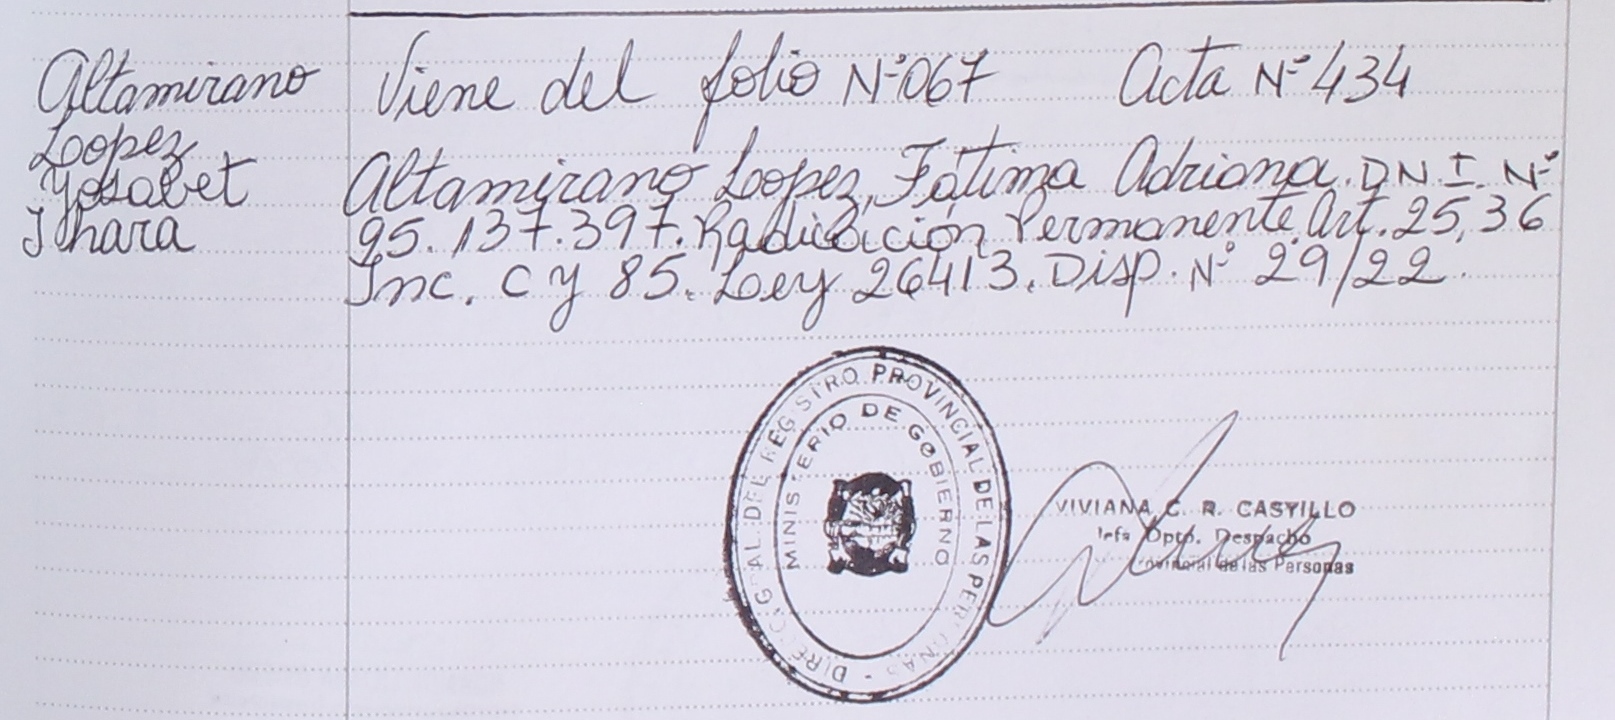 Altamirano
Lopez
Yosabet
Ihara
Viene del folio Nº 067 Acta Nº 434
Altamirano Lopez, Fátima Adriana. DNI. Nº
95.137.397. Radicación Permanente. Art. 25, 36
Inc. C y 85. Ley 26413. Disp. Nº 29/22.
DIRECC. GRAL. DEL REGISTRO PROVINCIAL DE LAS PERSONAS -
MINISTERIO DE GOBIERNO
VIVIANA C. R. CASTILLO
Jefa Dpto. Despacho
ovincial de las Personas